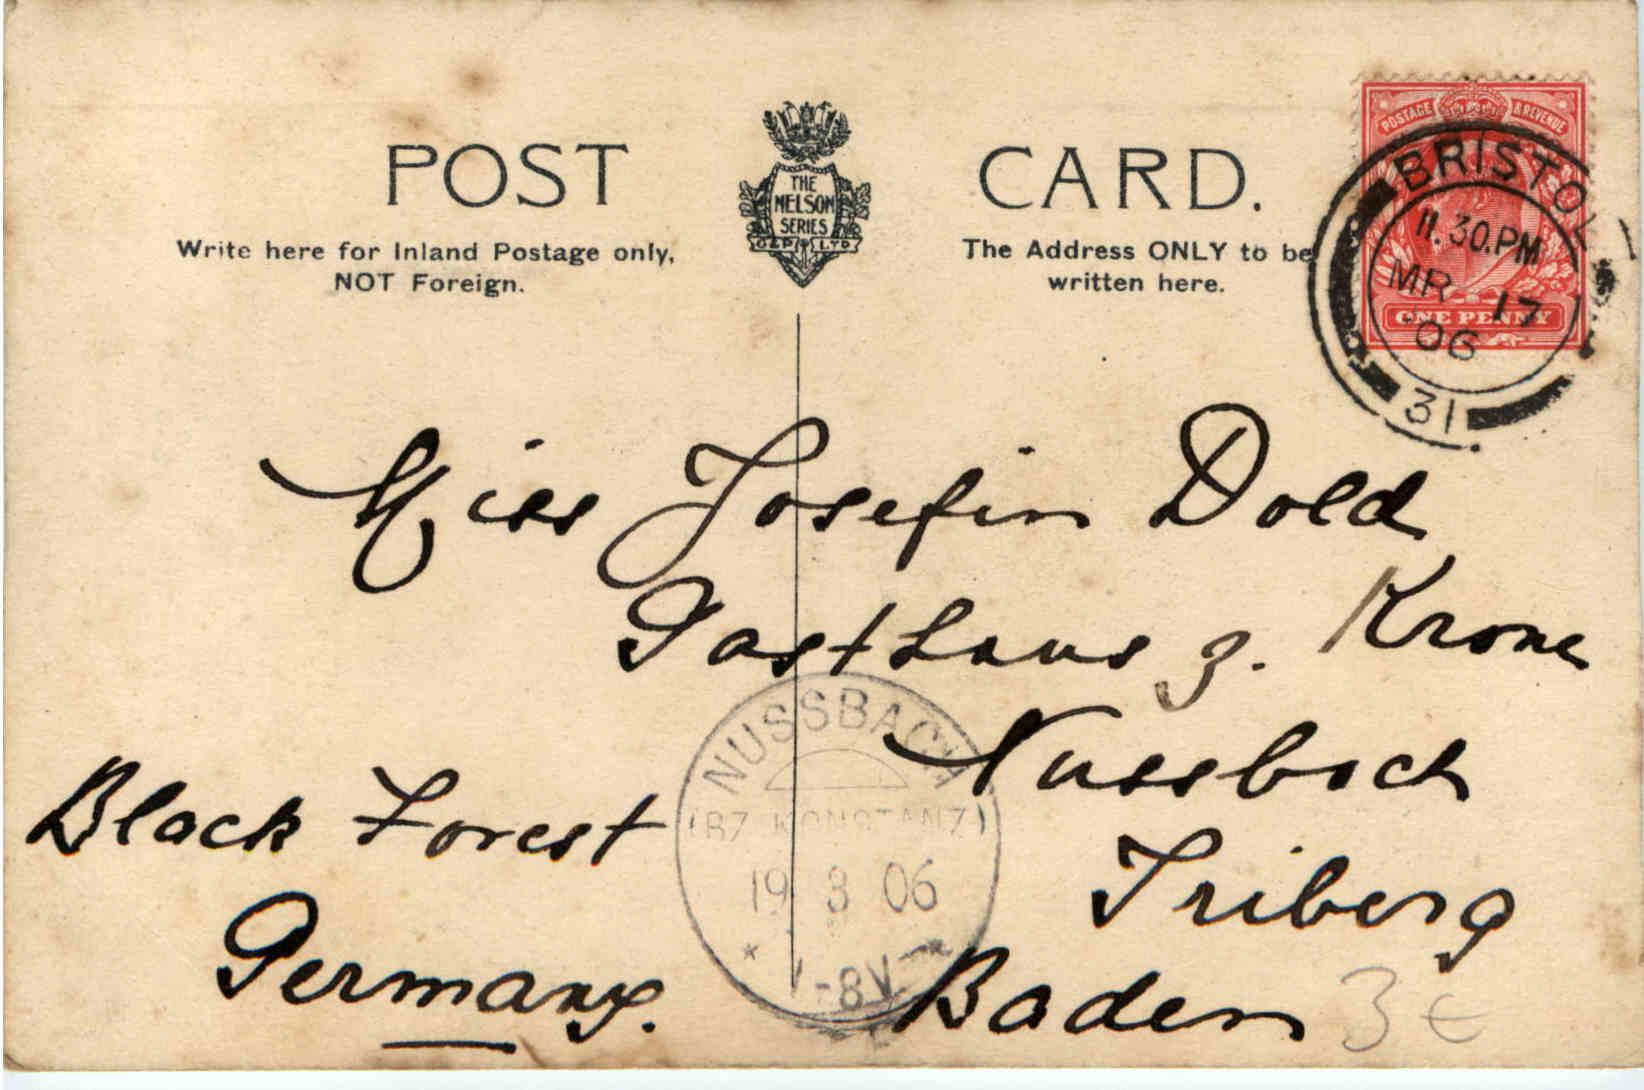 POST CARD.
THE
NELSON
SERIES
G&P LTD
Write here for Inland Postage only,
NOT Foreign.
The Address ONLY to be
written here.
POSTAGE & REVENUE
ONE PENNY
BRISTOL
11.30.PM
MR 17
06
31
Miss Josefin Dold
Gasthaus z. Krone
Nussbach
Triberg
Baden
Black Forest
Germany.
NUSSBACH
(BZ. KONSTANZ)
19 3 06
-8V
3 €